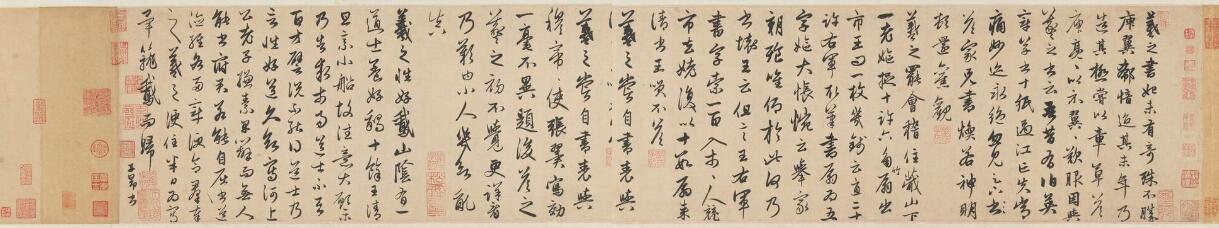 羲之書初未有奇殊不勝
庾翼郗愔迨其末年乃
造其極嘗以章草答
庾亮亮以示翼翼歎服因與
羲之書云吾昔有伯英
章草書十紙過江亡失常
痛妙迹永絕忽見足下
答家兄書煥若神明
頓還舊觀
羲之罷會稽住蕺山下
一老嫗捉十許六角竹扇出
市王問一枚幾錢云直二十
許右軍取筆書扇扇為五
字嫗大悵惋云舉家
朝飡唯仰於此何乃
書壞王云但言王右軍
書字索一百入市人競
市去姥復以十數扇來
請書王笑不答
羲之嘗自書表與
羲之嘗自書表與
穆帝帝使張翼寫効
一毫不異題後答之
羲之初不覺更詳看
乃歎曰小人幾欲亂
真
羲之性好鵝山陰有一
道士養好鵝十餘王清
旦乘小船故往意大願樂
乃告求市易道士不與
百方譬說不能得之道士乃
言性好道久欲寫河上
公老子縑素早辦而無人
能書府君若能自屈書道
德經各兩章便合群奉
之羲之便住半日為寫
畢籠鵝而歸
子昂書